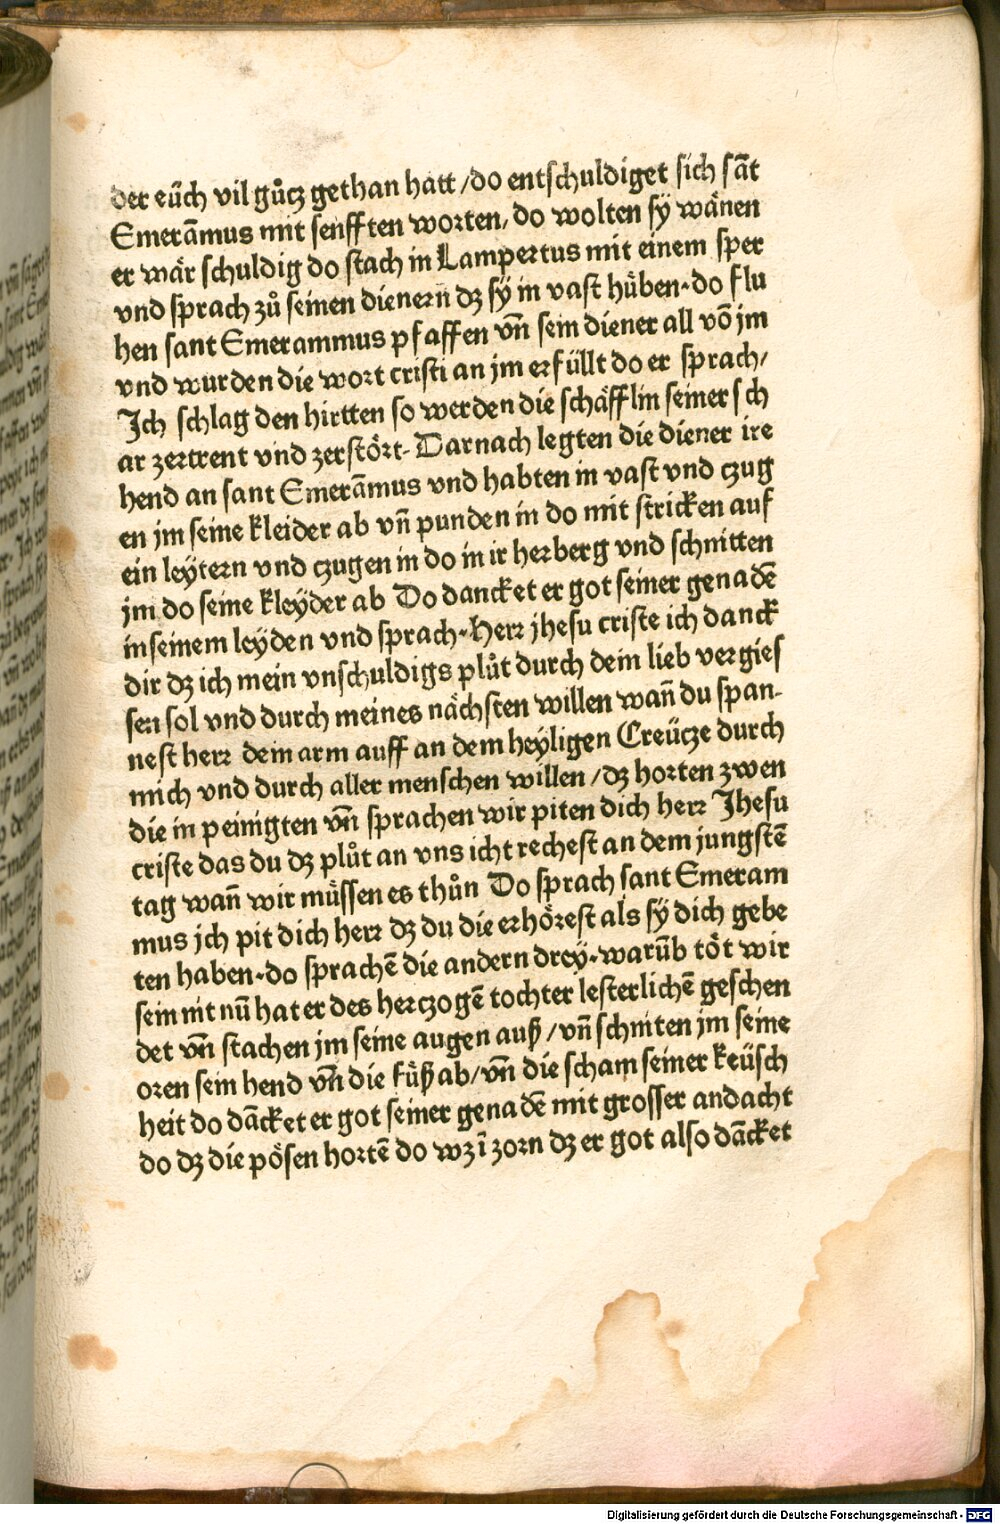 der eűch vil gůcz gethan hatt /do entschuldiget sich sāt
Emerāmus mit senfften worten, do wolten sÿ wänen
er wär schuldig do stach in Lampertus mit einem sper
vnd sprach zů seinen dienern dz sÿ in vast hüben. do flu
hen sant Emerammus pfaffen vn̄ sein diener all vō jm
vnd wurden die wort cristi an jm erfüllt do er sprach/
Ich schlag den hirtten so werden die schäfflin seiner sch
ar zertrent vnd zerstört. Darnach legten die diener ire
hend an sant Emerāmus vnd habten in vast vnd czug
en jm seine kleider ab vn̄ punden in do mit stricken auf
ein leÿtern vnd czugen in do in ir herberg vnd schnitten
jm do seine kleÿder ab Do dancket er got seiner genadē
in seinem leÿden vnd sprach. Herr jhesu criste ich danck
dir dz ich mein vnschuldigs plůt durch dein lieb vergies
sen sol vnd durch meines nächsten willen wan̄ du span-
nest herr dein arm auff an dem heÿligen Creücze durch
mich vnd durch aller menschen willen /dz horten zwen
die in peinigten vn̄ sprachen wir piten dich herr Jhesu
criste das du dz plůt an vns icht rechest an dem jungstē
tag wan̄ wir müssen es thůn Do sprach sant Emeram
mus jch pit dich herr dz du die erhörest als sÿ dich gebe
ten haben. do sprachē die andern dreÿ. warūb töt wir
sein nit nū hat er des herczogē tochter lesterlichē geschen
det vn̄ stachen jm seine augen auß /vn̄ schniten jm seine
oren sein hend vn̄ die füß ab/vn̄ die scham seiner keüsch
heit do dācket er got seiner genadē mit grosser andacht
do dz die pösen hortē do wz ī zorn dz er got also dācket
Digitalisierung gefördert durch die Deutsche Forschungsgemeinschaft - DFG